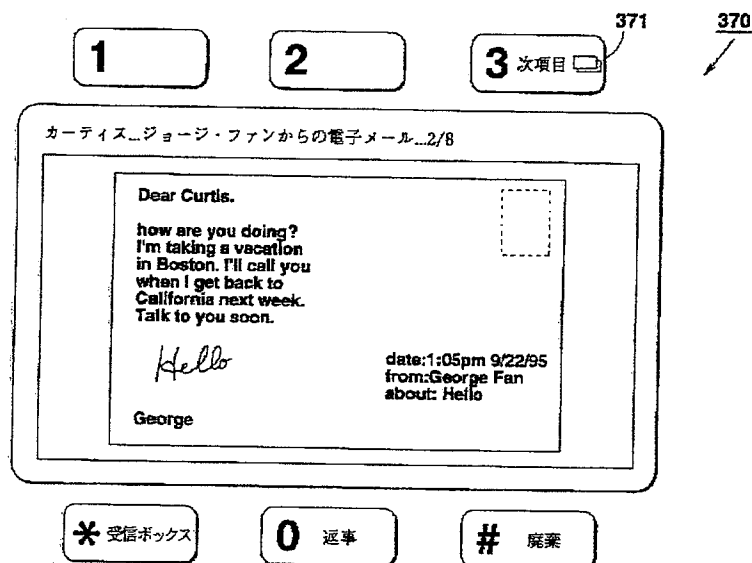 371
370
1
2
3 次項目
カーティス...ジョージ・ファンからの電子メール...2/8
Dear Curtis.
how are you doing?
I'm taking a vacation
in Boston. I'll call you
when I get back to
California next week.
Talk to you soon.
Hello
date:1:05pm 9/22/95
from:George Fan
about: Hello
George
* 受信ボックス
0 返事
# 廃棄